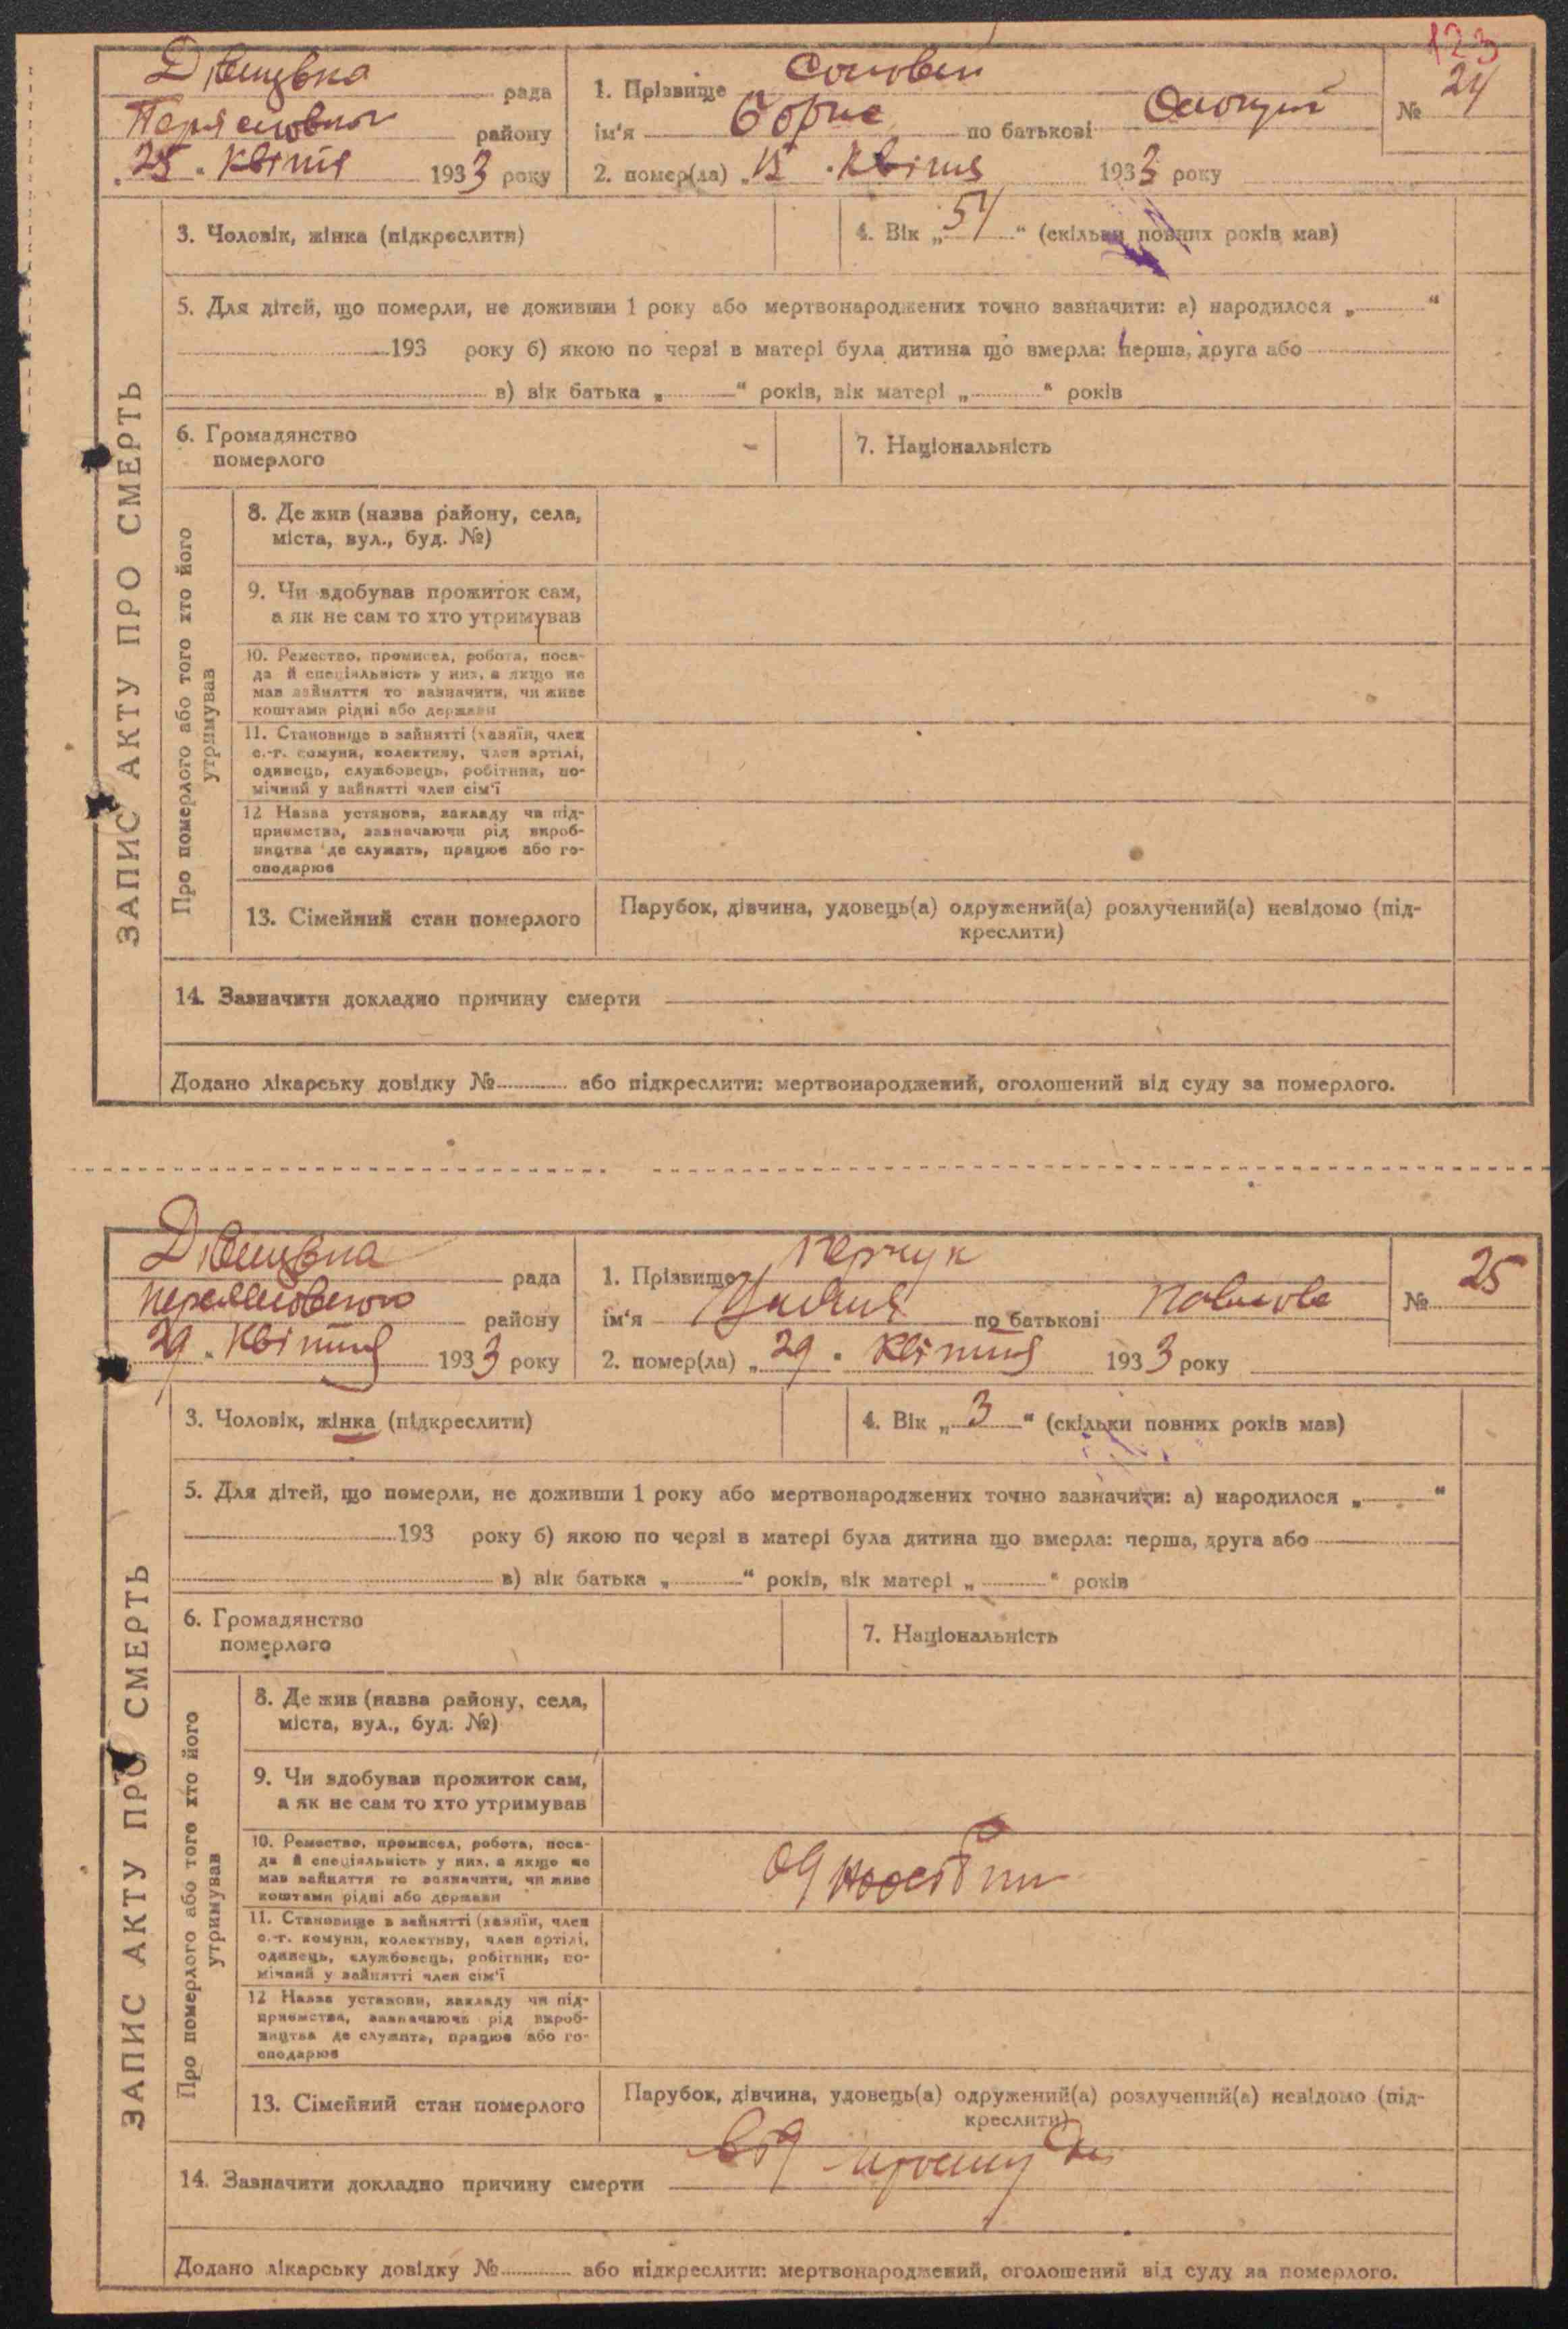 123
Дівицівка рада
району
25 " Квітня 1933 року
1. Прізвище Соловей
ім'я Борис по батькові
2. помер(ла) „15 " Квітня 1933 року
№ 24
ЗАПИС АКТУ ПРО СМЕРТЬ
3. Чоловік, жінка (підкреслити)
4. Вік „ 54 “ (скільки повних років мав)
5. Для дітей, що померли, не доживши 1 року або мертвонароджених точно зазначити: а) народилося „ “
193 року б) якою по черзі в матері була дитина що вмерла: перша, друга або
в) вік батька „ “ років, вік матері „ “ років
6. Громадянство
померлого
7. Національність
Про померлого або того хто його
утримував
8. Де жив (назва району, села,
міста, вул., буд. №)
9. Чи здобував прожиток сам,
а як не сам то хто утримував
10. Ремество, промисел, робота, поса-
да й спеціяльність у них, а якщо не
мав зайняття то зазначити, чи живе
коштами рідні або держави
11. Становище в зайнятті (хазяїн, член
с.-г. комуни, колективу, член артілі,
одинець, службовець, робітник, по-
мічний у зайнятті член сім'ї
12 Назва установи, закладу чи під-
приємства, зазначаючи рід вироб-
ництва де служить, працює або го-
сподарює
13. Сімейний стан померлого
Парубок, дівчина, удовець(а) одружений(а) розлучений(а) невідомо (під-
креслити)
14. Зазначити докладно причину смерти
Додано лікарську довідку № або підкреслити: мертвонароджений, оголошений від суду за померлого.
Дівицівка рада
району
29 " Квітня 1933 року
1. Прізвище
ім'я по батькові Павлова
2. помер(ла) „ 29 " Квітня 1933 року
№ 25
ЗАПИС АКТУ ПРО СМЕРТЬ
3. Чоловік, жінка (підкреслити)
4. Вік „ 3 “ (скільки повних років мав)
5. Для дітей, що померли, не доживши 1 року або мертвонароджених точно зазначити: а) народилося „ “
193 року б) якою по черзі в матері була дитина що вмерла: перша, друга або
в) вік батька „ “ років, вік матері „ “ років
6. Громадянство
померлого
7. Національність
Про померлого або того хто його
утримував
8. Де жив (назва району, села,
міста, вул., буд. №)
9. Чи здобував прожиток сам,
а як не сам то хто утримував
10. Ремество, промисел, робота, поса-
да й спеціяльність у них, а якщо не
мав зайняття то зазначити, чи живе
коштами рідні або держави
11. Становище в зайнятті (хазяїн, член
с.-г. комуни, колективу, член артілі,
одинець, службовець, робітник, по-
мічний у зайнятті член сім'ї
12 Назва установи, закладу чи під-
приємства, зазначаючи рід вироб-
ництва де служить, працює або го-
сподарює
13. Сімейний стан померлого
Парубок, дівчина, удовець(а) одружений(а) розлучений(а) невідомо (під-
креслити)
14. Зазначити докладно причину смерти від
Додано лікарську довідку № або підкреслити: мертвонароджений, оголошений від суду за померлого.